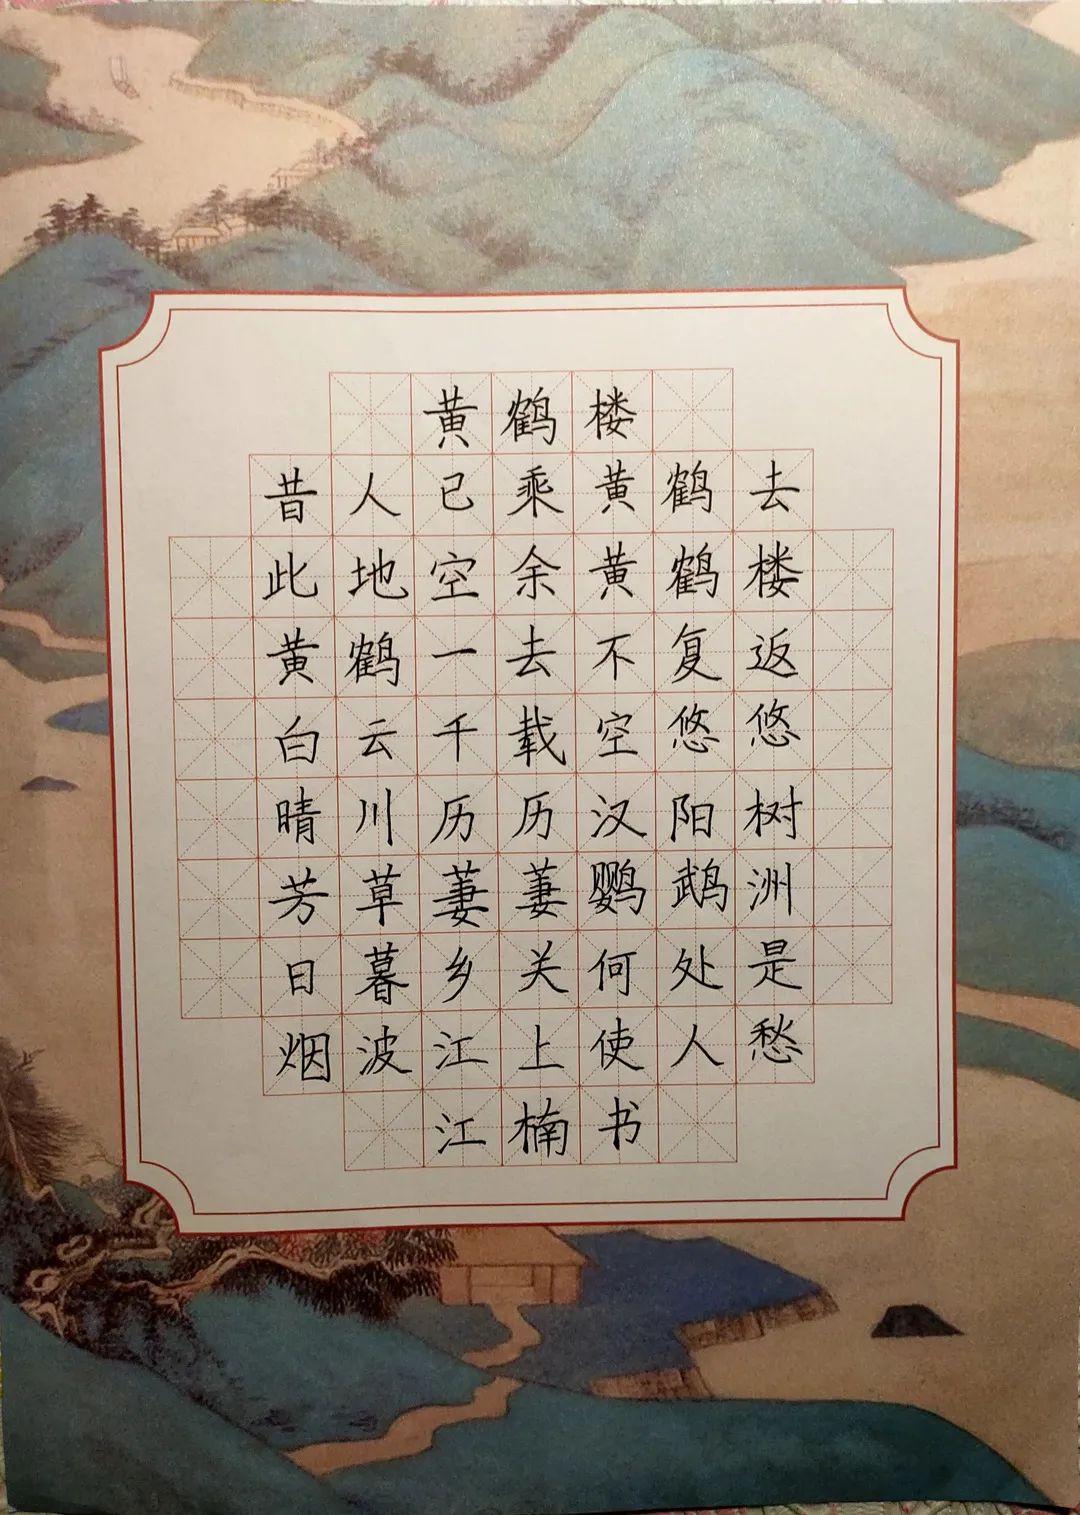 黄鹤楼
昔人已乘黄鹤去
此地空余黄鹤楼
黄鹤一去不复返
白云千载空悠悠
晴川历历汉阳树
芳草萋萋鹦鹉洲
日暮乡关何处是
烟波江上使人愁
江楠书